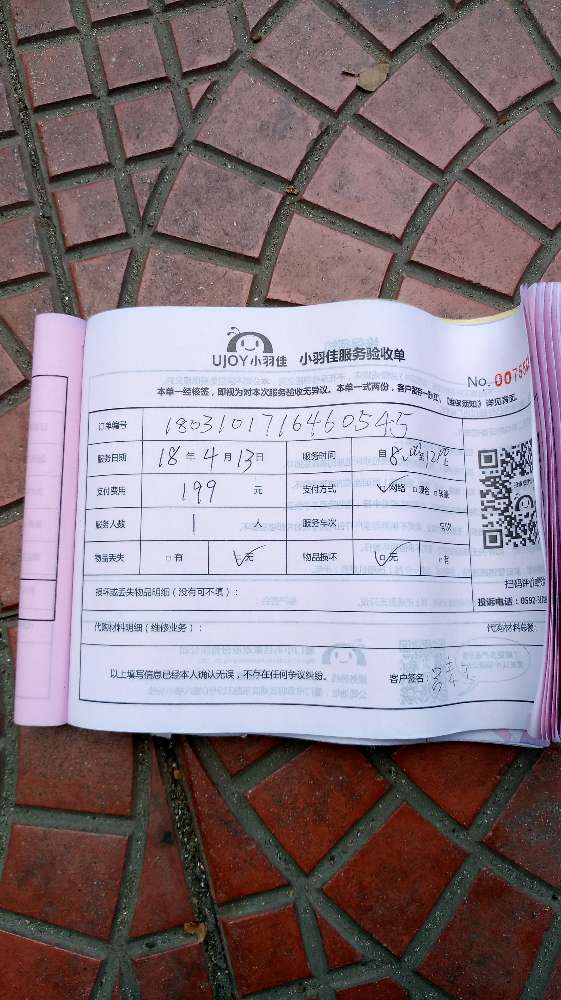 UJOY 小羽佳 小羽佳服务验收单
No. 0075
本单一经接签，即视为对本次服务验收无异议。本单一式两份，客户留存一联，《验收须知》详见背面。
订单编号 180310171646054545
服务日期 18 年 4 月 13 日 服务时间 自 8:00 至 12:00
支付费用 199 元 支付方式 ☑网络 □现金
服务人数 1 人 服务车次 车次
物品丢失 □有 ☑无 物品损坏 ☑无 □有
扫码评价
损坏或丢失物品明细（没有可不填）：
投诉电话：0592-
代购材料明细（维修业务）： 代购材料总额：
以上填写信息已经本人确认无误，不存在任何争议纠纷。 客户签名：